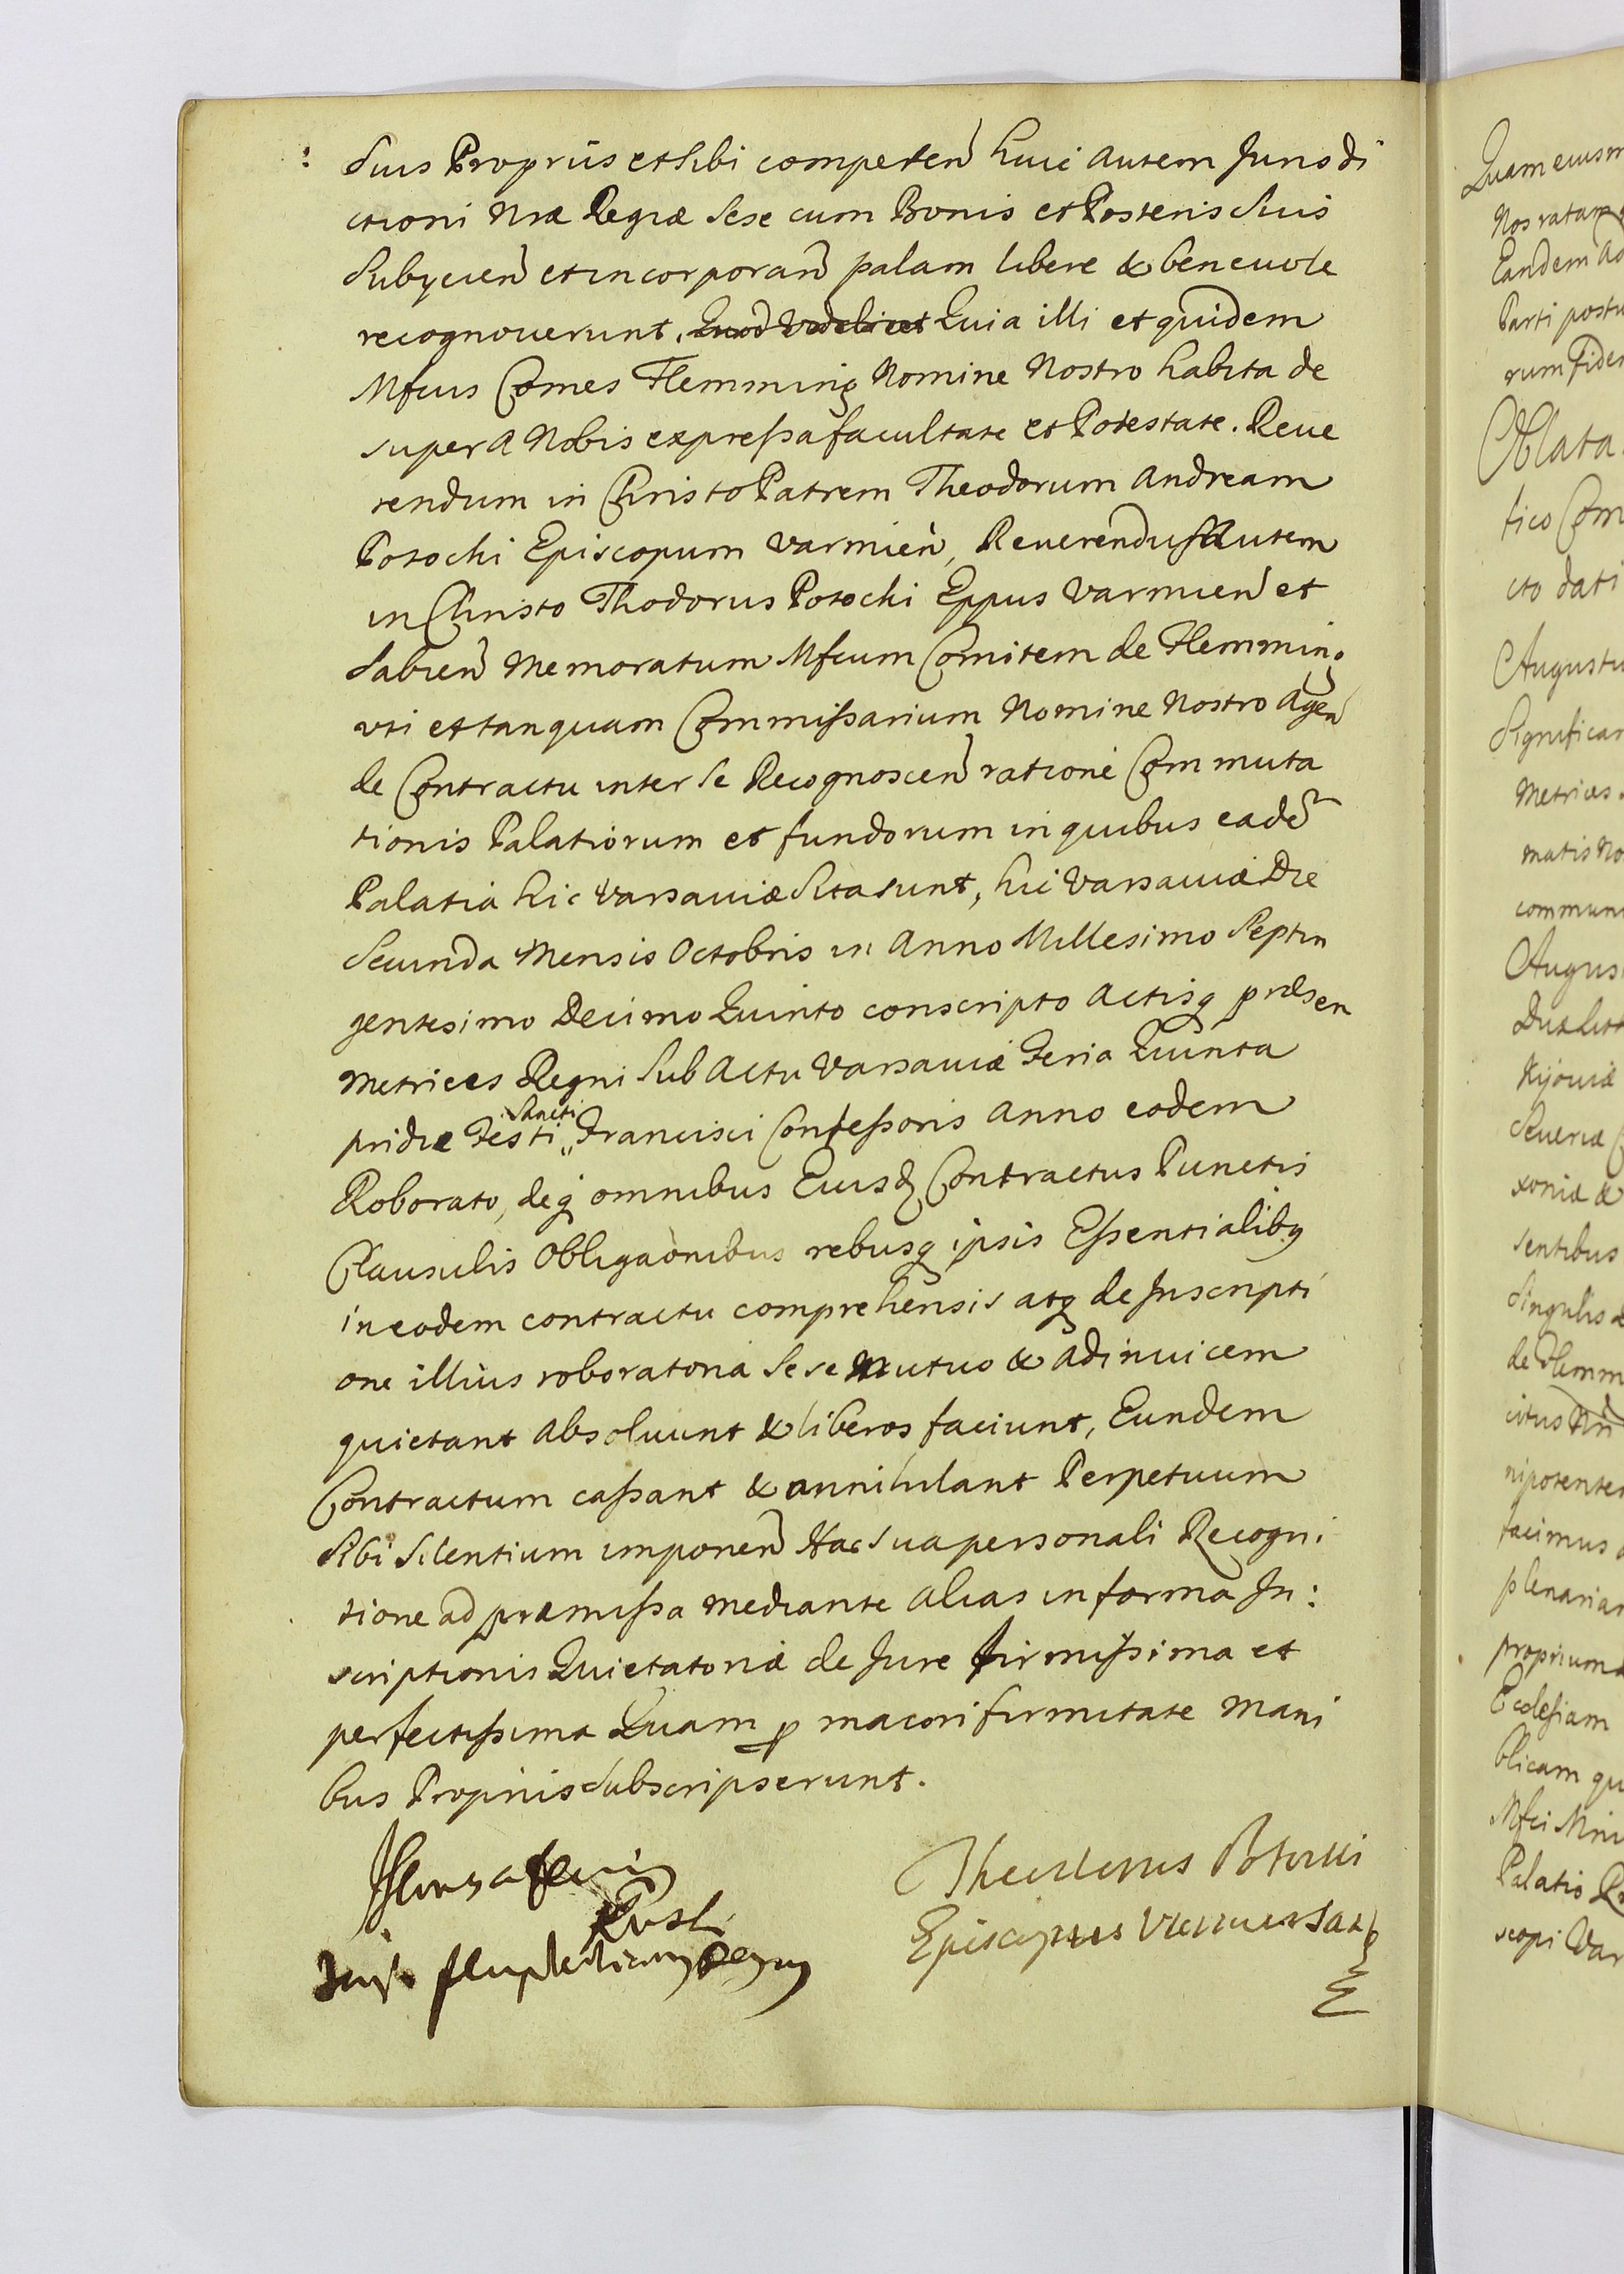 Suis Propriis et Sibi competen huic autem Jurisdi
ctioni Nræ Regiæ Sese cum Bonis et Posteris Suis
Subycien et incorporan palam libere & beneuole
recognouerunt. Quod videlicet Quia illi et quidem
Mfcus Comes Flemming Nomine Nostro habita de
super a Nobis expressa facultate et Potestate. Reue
rendum in Christo Patrem Theodorum Andream
Potochi Episcopum Varmien, Reuerendus autem
in Christo Thodorus Potochi Eppus Varmien et
Sabien Memoratum Mfcum Comitem de Flemming
uti et tanquam Commissarium Nomine Nostro Agen
de Contractu inter se Recognoscen ratione Commuta
tionis Palatiorum et fundorum in quibus eade
Palatia hic Varsauiæ Sita sunt, hic Varsauiæ Die
Secunda Mensis Octobris in Anno Millesimo Septin
gentesimo Decimo Quinto conscripto Actisq præsen
Metrices Regni Sub Actu Varsauiæ Feria Quinta
pridie Festi Sancti Francisci Confessoris Anno eodem
Roborato, deq omnibus Eiusd Contractus Punctis
Clausulis Obligaonibus rebusq ipsis Essentialibq
in eodem contractu comprehensis atq de Inscripti
one illius roboratoria Sese Mutuo & adinuicem
quietant absoluunt & liberos faciunt, Eundem
Contractum cassant & annihilant Perpetuum
Sibi Silentium imponen Hac Sua personali Recogni
tione ad præmissa mediante alias in forma In:
scriptionis Quietatoriæ de Jure firmissima et
perfectissima Quam p maiori firmitate Mani
bus Propriis Subscripserunt.
Theodorus Potocki
Episcopus
Quam eiusm
Nos ratam
Eandem Ad
Parti postu
rum fide
Oblata
tico Com
cto dati
Augustu
Significa
Metrices
matis No
commun
Augus
Dux Lit
Kijouiæ
Seueriæ
xoniæ &
sentibus
Singulis
de Flemm
nipotente
facimus
plenaria
proprium
Ecclesiam
blicam qu
Mfci
Palatio
scopi Var